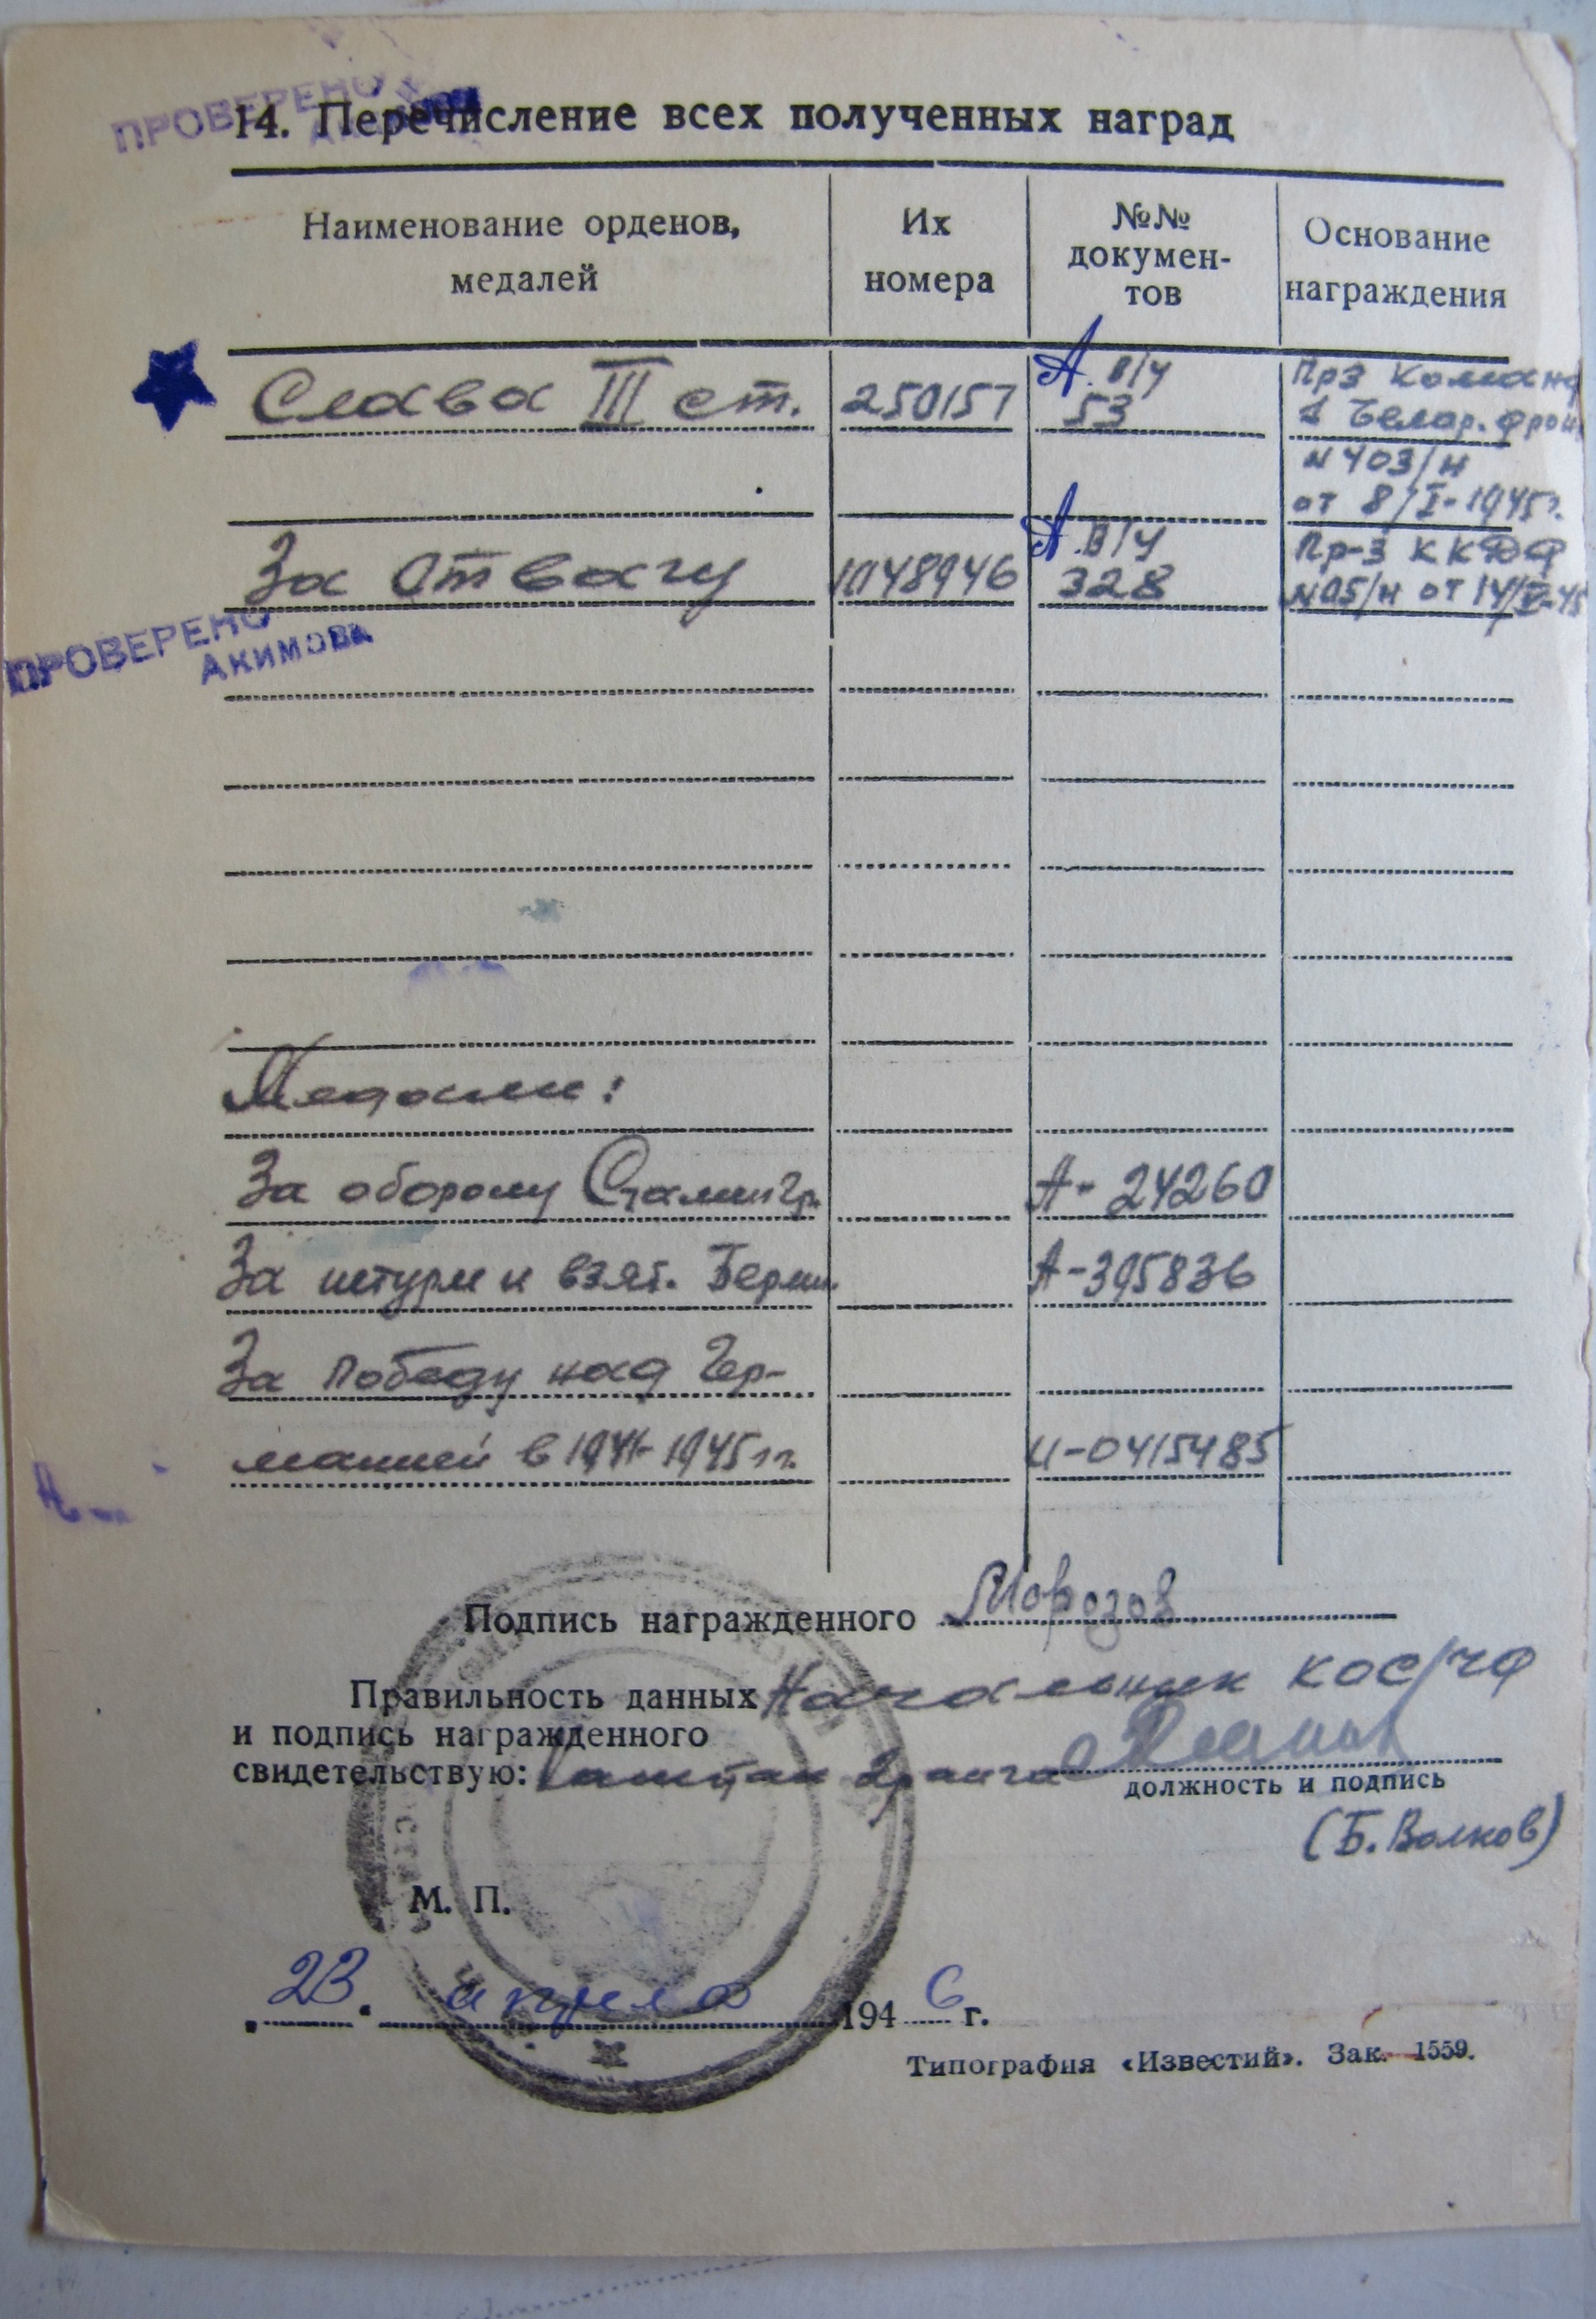 ПРОВЕРЕНО
14. Перечисление всех полученных наград
Наименование орденов, медалей
Их номера
№№ докумен-
тов
Основание награждения
Слава III ст. 250157 А. В/у 53
Прз Команд
1 Белор. фрон
N 403/н
от 8/I-1945г.
За Отвагу 1048946 А. В/у 328
Пр-з ККДФ
N05/н от 14/V-45
ПРОВЕРЕНО
АКИМОВА
Медали:
За оборону Сталингр. А-24260
За штурм и взят. Берлин. А-395836
За победу над Гер-
манией в 1941-1945 гг. И-0415485
Подпись награжденного Морозов
Правильность данных Начальник КОС/ЧФ
и подпись награжденного
свидетельствую: Капитан 2 ранга
должность и подпись
(Б. Волков)
М. П.
„23" апреля 1946 г.
Типография «Известий». Зак. 1559.